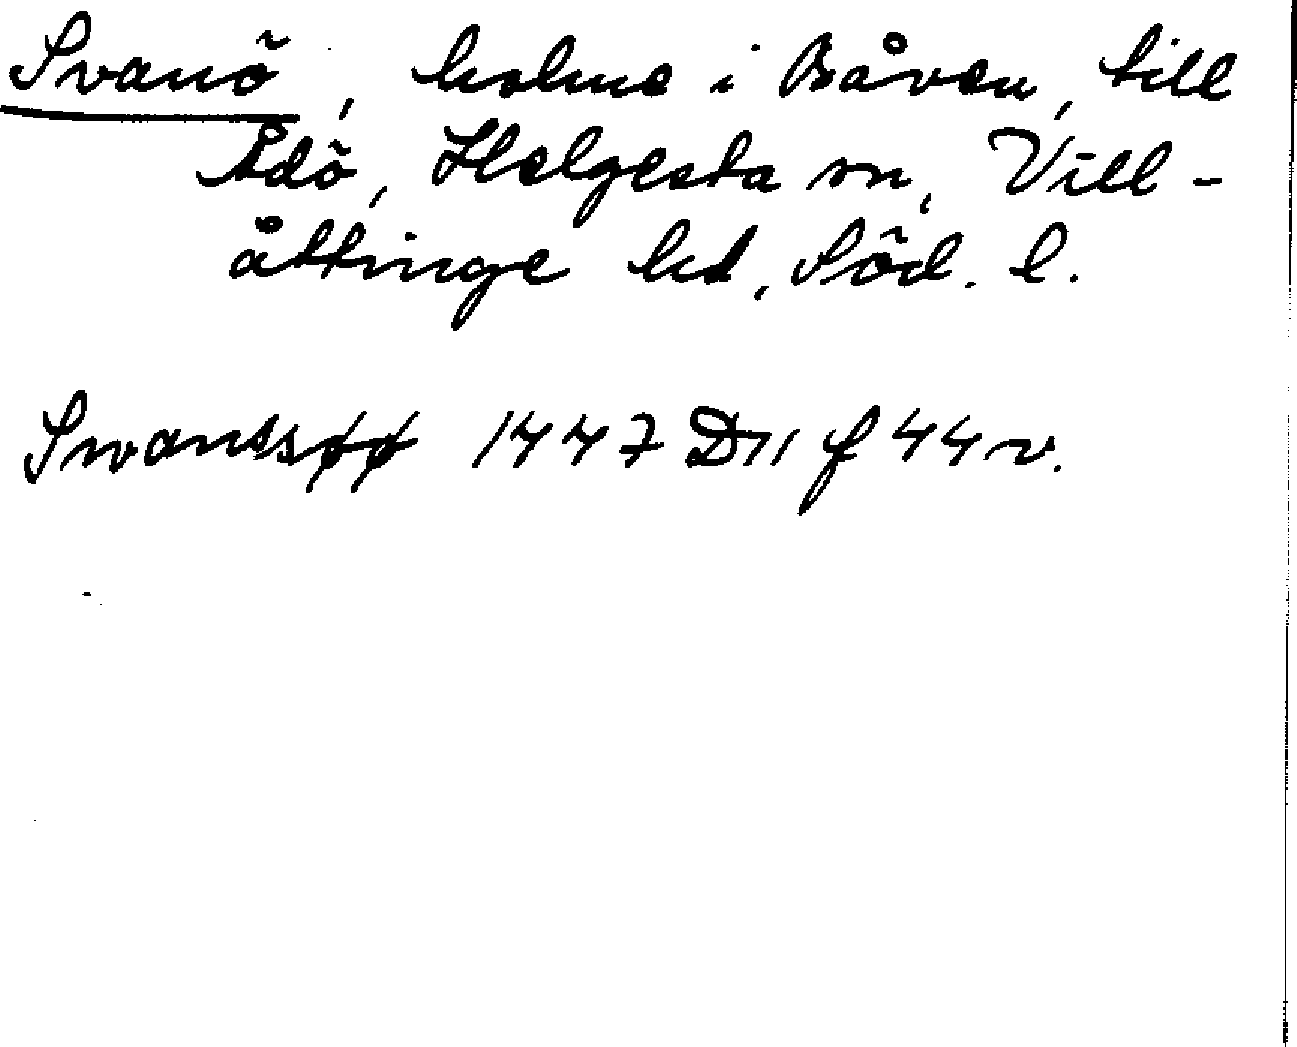 Svanö, holme i Båven, till
Ådö, Helgesta sn, Vill-
åttinge hd, Söd. l.
Swanssøø 1447 D11 f 44 v.